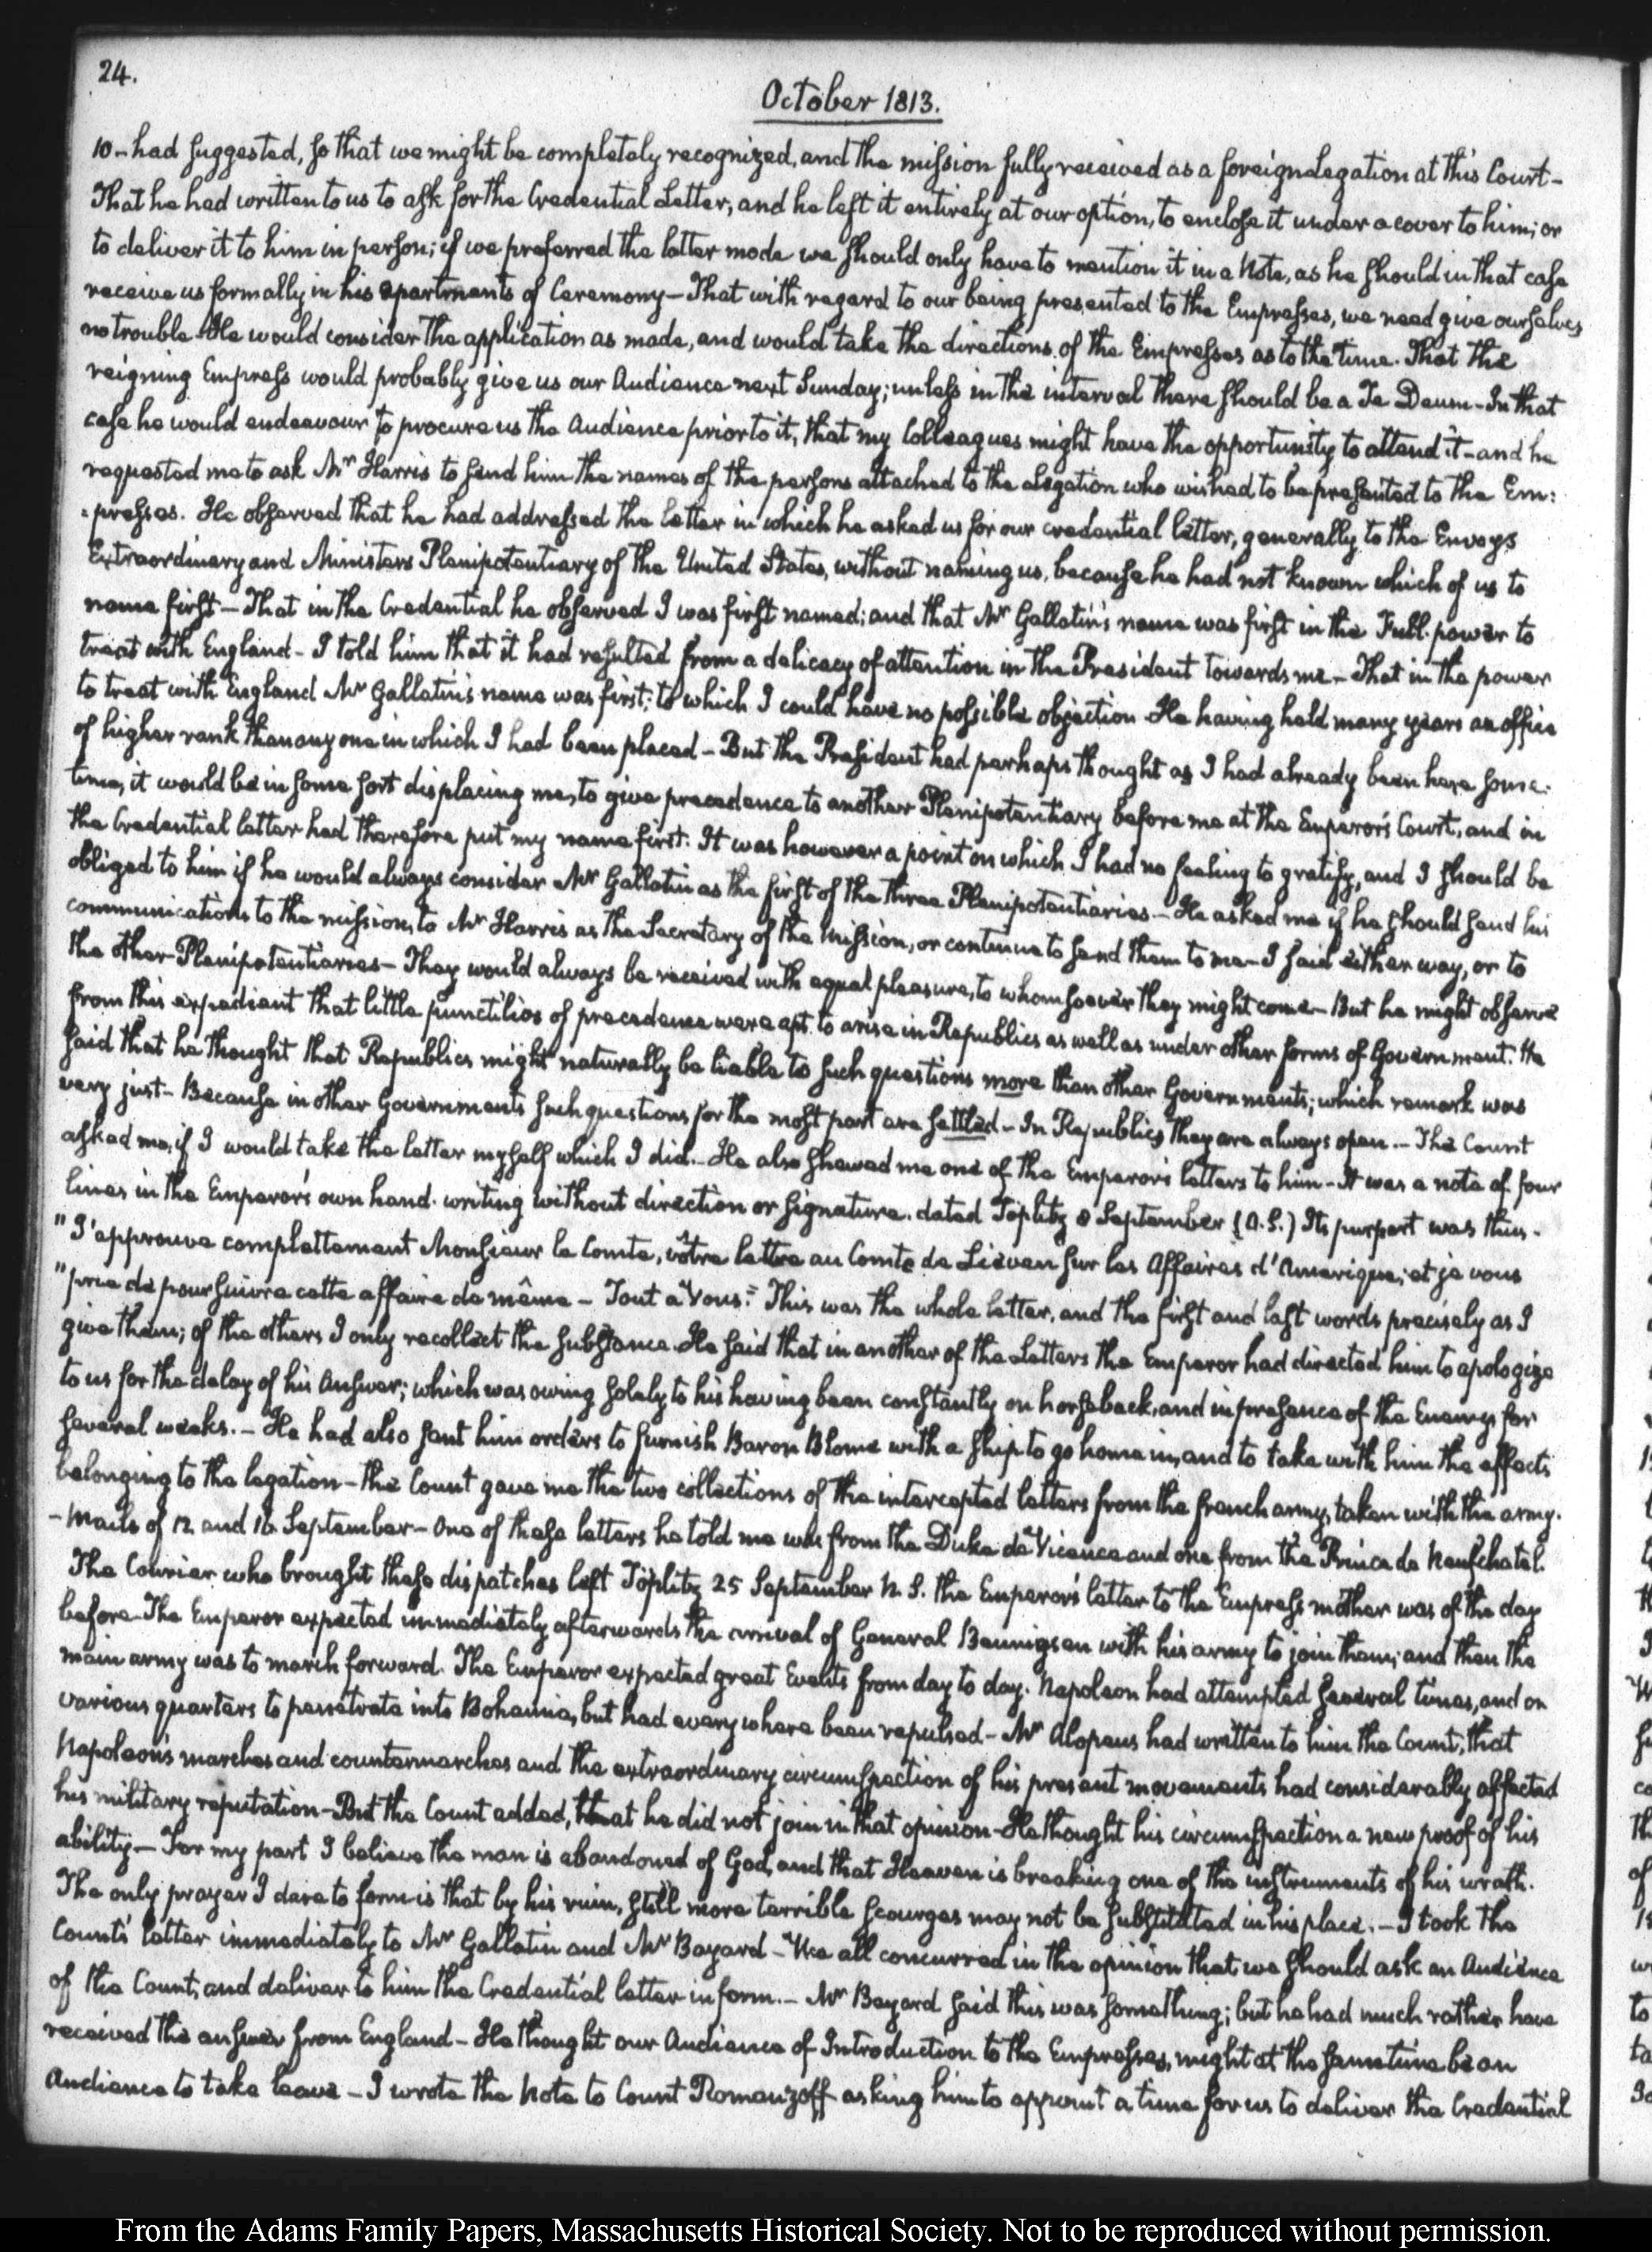 24.
October 1813.
10 - had suggested, so that we might be completely recognized, and the mission fully received as a foreign Legation at this Court -
That he had written to us to ask for the Credential Letter, and he left it entirely at our option, to enclose it under a cover to him; or
to deliver it to him in person; if we preferred the latter mode we should only have to mention it in a Note, as he should in that case
receive us formally in his apartments of Ceremony - That with regard to our being presented to the Empresses, we need give ourselves
no trouble. He would consider the application as made, and would take the directions of the Empresses as to the time. That the
reigning Empress would probably give us our Audience next Sunday; unless in the interval there should be a Te Deum - In that
case he would endeavour to procure us the Audience prior to it, that my Colleagues might have the opportunity to attend it - and he
requested me to ask Mr Harris to send him the names of the persons attached to the Legation who wished to be presented to the Em:
:presses. He observed that he had addressed the letter in which he asked us for our credential letter, generally to the Envoys
Extraordinary and Ministers Plenipotentiary of the United States, without naming us, because he had not known which of us to
name first - That in the Credential he observed I was first named; and that Mr Gallatin's name was first in the Full-power to
treat with England - I told him that it had resulted from a delicacy of attention in the President towards me - That in the power
to treat with England Mr Gallatin's name was first; to which I could have no possible objection. He having held many years an office
of higher rank than any one in which I had been placed - But the President had perhaps thought as I had already been here some
time, it would be in some sort displacing me, to give precedence to another Plenipotentiary before me at the Emperor's Court, and in
the Credential letter had therefore put my name first. It was however a point on which I had no feeling to gratify, and I should be
obliged to him if he would always consider Mr Gallatin as the first of the three Plenipotentiaries - He asked me if he should send his
communications to the mission, to Mr Harris as the Secretary of the Mission, or continue to send them to me - I said either way, or to
the other Plenipotentiaries - They would always be received with equal pleasure, to whomsoever they might come - But he might observe
from this expedient that little punctilios of precedence were apt to arise in Republics as well as under other forms of Government. He
said that he thought that Republics might naturally be liable to such questions more than other Governments; which remark was
very just - Because in other Governments such questions for the most part are settled - In Republics they are always open. - The Count
asked me, if I would take the letter myself which I did. - He also shewed me one of the Emperor's letters to him - It was a note of four
lines in the Emperor's own hand-writing without direction or signature. dated Töplitz 8 September (O.S.) Its purport was thus -
" J'approuve complettement Monsieur le Comte, vôtre lettre au Comte de Lieven sur les Affaires d'Amerique; et je vous
" prie de poursuivre cette affaire de même - Tout a Vous." This was the whole letter, and the first and last words precisely as I
give them; of the others I only recollect the substance. He said that in another of the Letters the Emperor had directed him to apologize
to us for the delay of his Answer; which was owing solely to his having been constantly on horseback, and in presence of the Enemy for
several weeks. - He had also sent him orders to furnish Baron Blome with a ship to go home in, and to take with him the effects
belonging to the legation - the Count gave me the two collections of the intercepted letters from the french army, taken with the army-
-Mails of 12 and 16 September - One of these letters he told me was from the Duke de Vicence and one from the Prince de Neufchatel.
The Courier who brought these dispatches left Töplitz 25 September N.S. the Emperor's letter to the Empress mother was of the day
before. The Emperor expected immediately afterwards the arrival of General Bennigsen with his army to join them; and then the
main army was to march forward. The Emperor expected great Events from day to day. Napoleon had attempted several times, and on
various quarters to penetrate into Bohemia, but had every where been repulsed - Mr Alopeus had written to him the Count, that
Napoleon's marches and countermarches and the extraordinary circumspection of his present movements had considerably affected
his military reputation - But the Count added, that he did not join in that opinion - He thought his circumspection a new proof of his
ability - For my part I believe the man is abandoned of God, and that Heaven is breaking one of the instruments of his wrath.
The only prayer I dare to form is that by his ruin, still more terrible scourges may not be substituted in his place. - I took the
Count's letter immediately to Mr Gallatin and Mr Bayard - We all concurred in the opinion that we should ask an Audience
of the Count, and deliver to him the Credential letter in form. - Mr Bayard said this was something; but he had much rather have
received the answer from England - He thought our Audience of Introduction to the Empresses, might at the same time be an
Audience to take leave - I wrote the Note to Count Romanzoff asking him to appoint a time for us to deliver the Credential
From the Adams Family Papers, Massachusetts Historical Society. Not to be reproduced without permission.